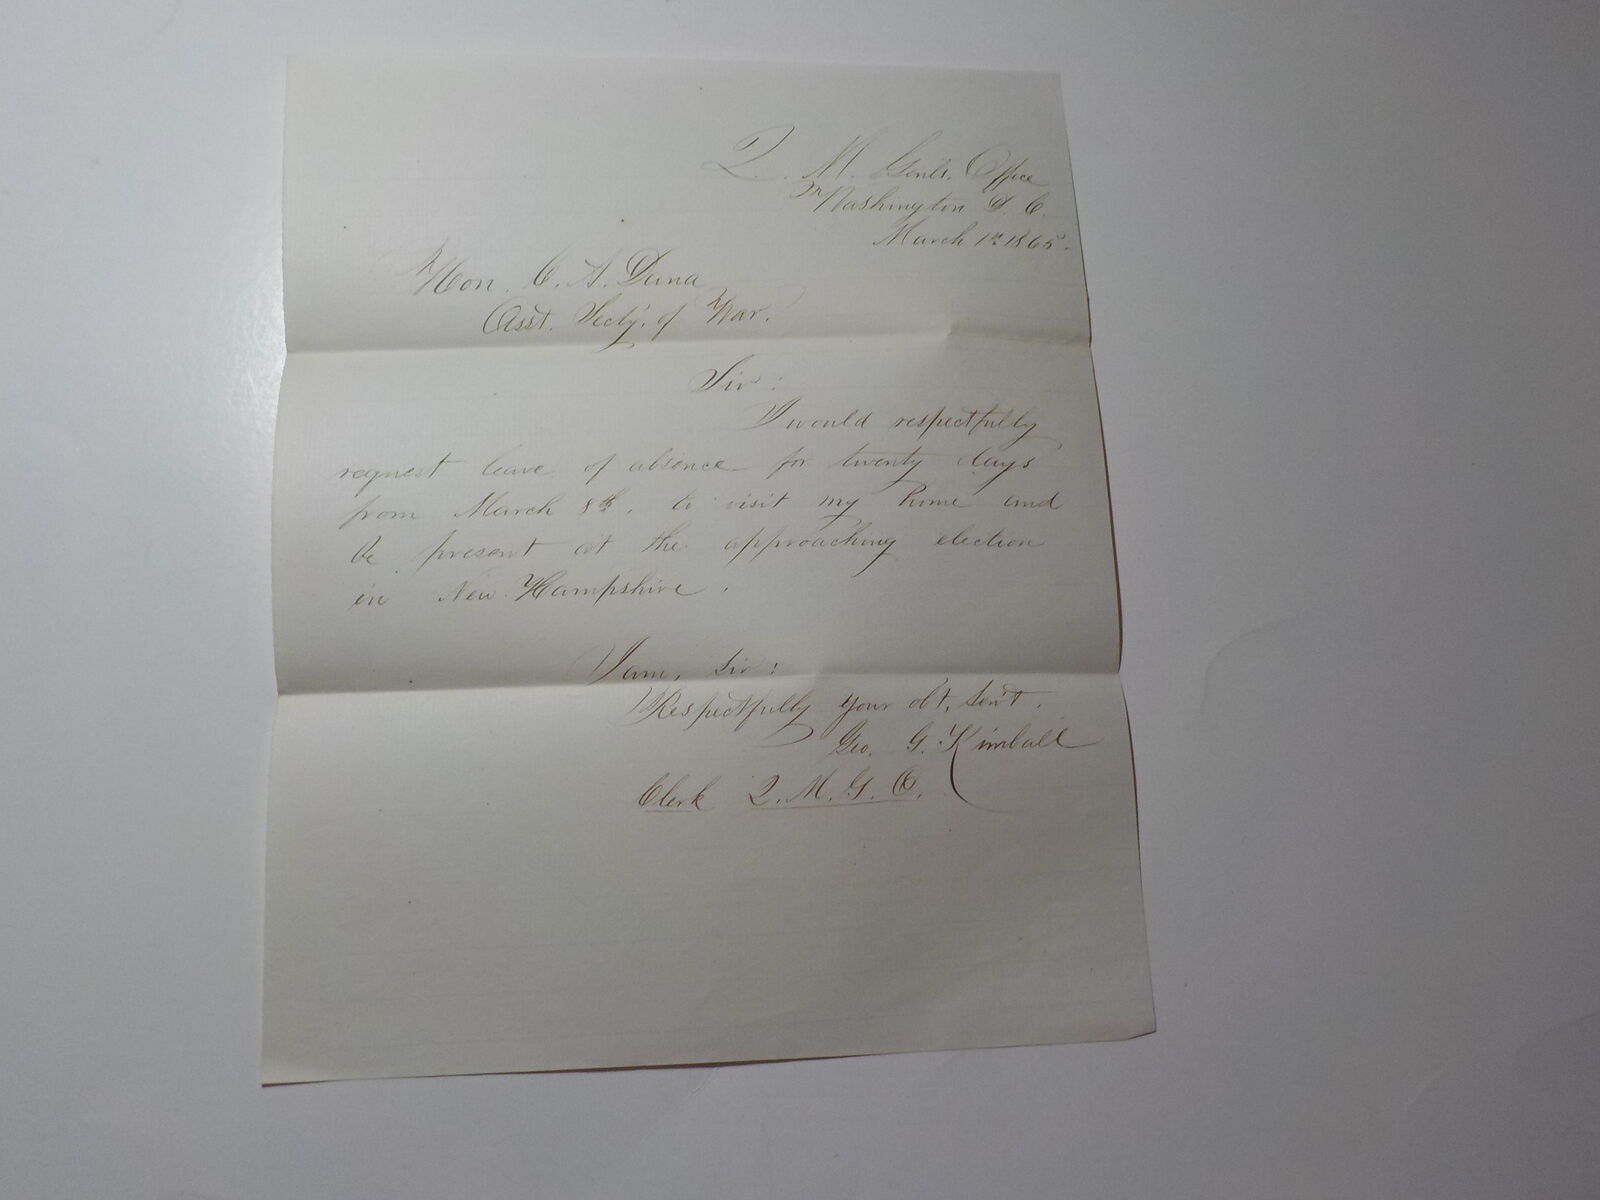 Q. M. Genl's. Office
Washington D. C.
March 1st 1865
Hon. C. A. Dana
Asst. Secty. of War.
Sir:
I would respectfully
request leave of absence for twenty days
from March 8th. to visit my home and
be present at the approaching election
in New Hampshire.
I am, Sir:
Respectfully your obt. Servt.
Geo. G. Kimball
Clerk Q. M. G. O.